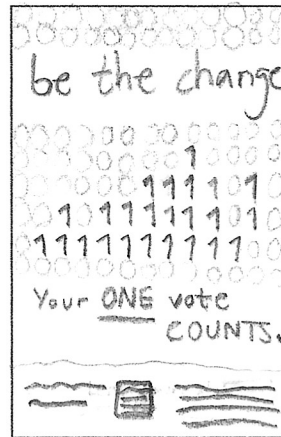 be the change
1
1111 1
1 11111 1 1
1111111111
Your ONE vote
COUNTS.